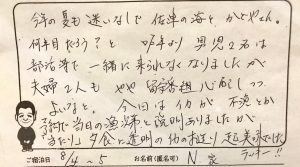 今年の夏も迷いなしで佐津の海と、かどやさん。
何年目だろう？と 昨年より男児2名は
部活等で一緒に来られなくなりましたが
夫婦2人も やや留守番組心配しつつ
よいなと。今回は仲が不漁とか
予約で当日の漁師と説明ありましたが
当たり！夕食に透明の仲のお造り 超美味でした
ラッキー!!
ご宿泊日 8/4～5 お名前(匿名可) N 家